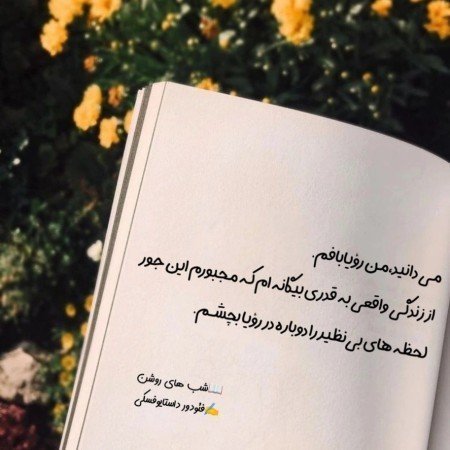 می دانید، من رؤیابافم.
از زندگی واقعی به قدری بیگانه ام که مجبورم این جور
لحظه های بی نظیر را دوباره در رؤیا بچشم.
📖شب های روشن
✍فئودور داستایوفسکی